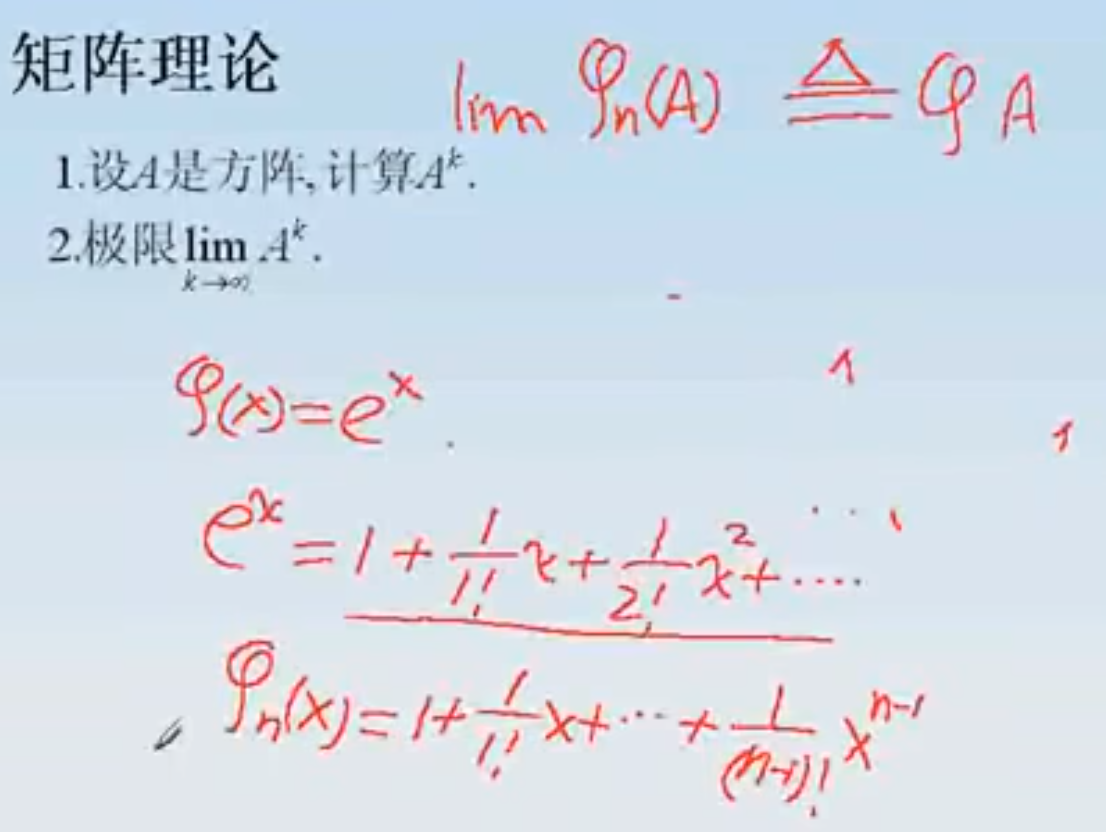 矩阵理论
lim φn(A) ≜ φ A
1.设A是方阵,计算A^k.
2.极限lim A^k.
k→∞
φ(x)=e^x
e^x=1+1/1! x+1/2! x^2+....
φn(x)=1+1/1! x+…+1/(n-1)! x^(n-1)